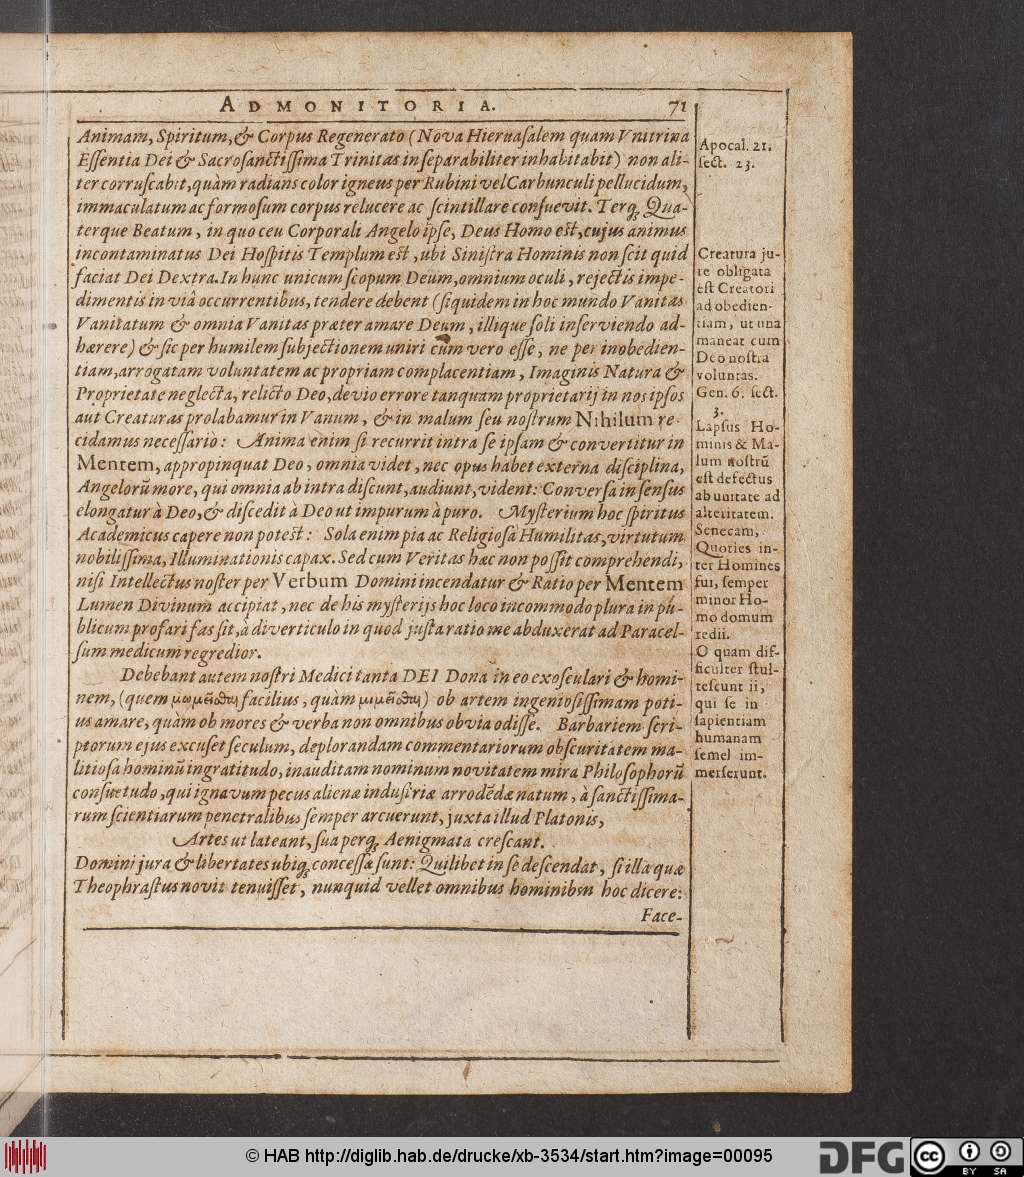 ADMONITORIA. 71
Animam, Spiritum, & Corpus Regenerato (Nova Hieruasalem quam Vnitrina
Essentia Dei & Sacrosanctissima Trinitas inseparabiliter inhabitabit) non ali-
ter corruscabit, quàm radians color igneus per Rubini vel Carbunculi pellucidum,
immaculatum ac formosum corpus relucere ac scintillare consuevit. Terq; Qua-
terque Beatum, in quo ceu Corporali Angelo ipse, Deus Homo est, cujus animus
incontaminatus Dei Hospitis Templum est, ubi Sinistra Hominis non scit quid
faciat Dei Dextra. In hunc unicum scopum Deum, omnium oculi, rejectis impe-
dimentis in viâ occurrentibus, tendere debent (siquidem in hoc mundo Vanitas
Vanitatum & omnia Vanitas præter amare Deum, illique soli inserviendo ad-
hærere) & sic per humilem subjectionem uniri cùm vero esse, ne per inobedien-
tiam, arrogatam voluntatem ac propriam complacentiam, Imaginis Natura &
Proprietate neglecta, relicto Deo, devio errore tanquam proprietarij in nos ipsos
aut Creaturas prolabamur in Vanum, & in malum seu nostrum Nihilum re-
cidamus necessario: Anima enim si recurrit intra se ipsam & convertitur in
Mentem, appropinquat Deo, omnia videt, nec opus habet externa disciplina,
Angelorũ more, qui omnia ab intra discunt, audiunt, vident: Conversa in sensus
elongatur à Deo, & discedit à Deo ut impurum à puro. Mysterium hoc spiritus
Academicus capere non potest: Sola enim pia ac Religiosa Humilitas, virtutum
nobilissima, Illuminationis capax. Sed cum Veritas hæc non possit comprehendi,
nisi Intellectus noster per Verbum Domini incendatur & Ratio per Mentem
Lumen Divinum accipiat, nec de his mysterijs hoc loco incommodo plura in pu-
blicum profari fas sit, à diverticulo in quod justa ratio me abduxerat ad Paracel-
sum medicum regredior.
Debebant autem nostri Medici tanta DEI Dona in eo exosculari & homi-
nem, (quem μωμεῖσθαι facilius, quàm μιμεῖσθαι) ob artem ingeniosissimam poti-
us amare, quàm ob mores & verba non omnibus obvia odisse. Barbariem scri-
ptorum ejus excuset seculum, deplorandam commentariorum obscuritatem ma-
litiosa hominũ ingratitudo, inauditam nominum novitatem mira Philosophorũ
consuetudo, qui ignavum pecus alienæ industriæ arrodẽdæ natum, à sanctissima-
rum scientiarum penetralibus semper arcuerunt, juxta illud Platonis,
Artes ut lateant, sua perq; Aenigmata crescant.
Domini jura & libertates ubiq; concessæ sunt: Quilibet in se descendat, si illa quæ
Theophrastus novit tenuisset, nunquid vellet omnibus hominibus hoc dicere:
Face-
Apocal. 21.
sect. 23.
Creatura ju-
re obligata
est Creatori
ad obedien-
tiam, ut una
maneat cum
Deo nostra
voluntas.
Gen. 6. sect.
3.
Lapsus Ho-
minis & Ma-
lum nostrũ
est defectus
ab unitate ad
alteritatem.
Senecam,
Quoties in-
ter Homines
fui, semper
minor Ho-
mo domum
redii.
O quam dif-
ficulter stul-
tescunt ii,
qui se in
sapientiam
humanam
semel im-
merserunt.
© HAB http://diglib.hab.de/drucke/xb-3534/start.htm?image=00095
DFG
cc BY SA